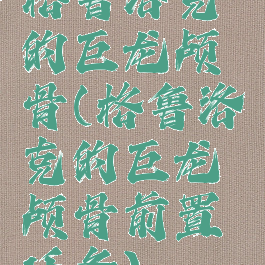 格鲁洛克
的巨龙颅
骨(格鲁洛
克的巨龙
颅骨前置
任务)